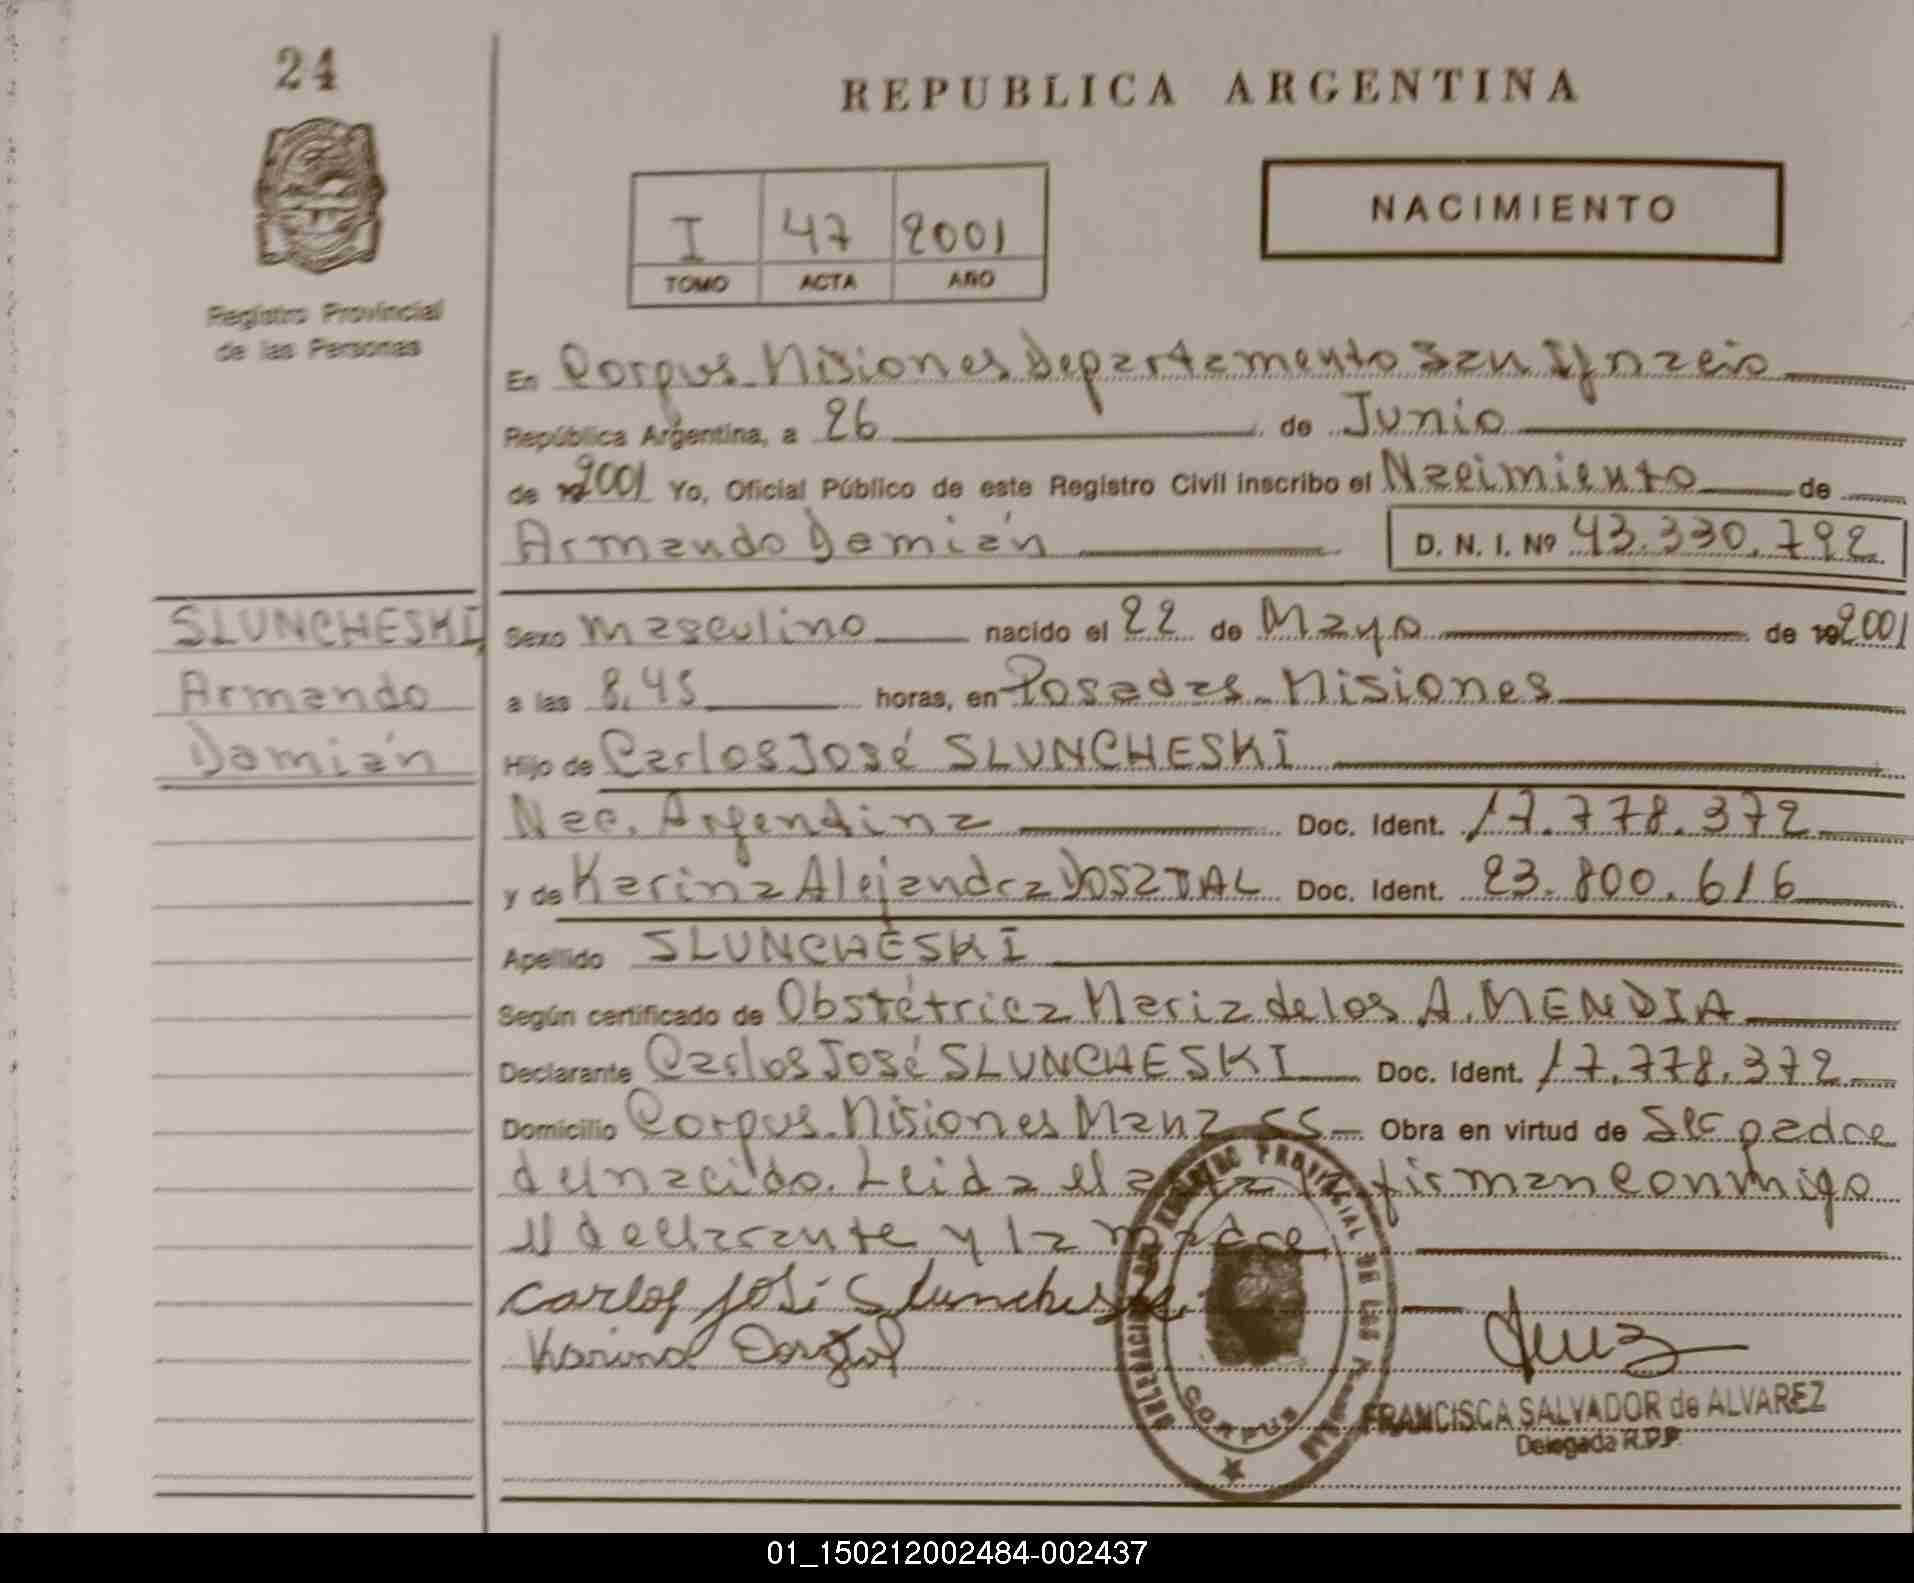 24
REPUBLICA ARGENTINA
Registro Provincial
de las Personas
I 47 2001
TOMO ACTA AÑO
NACIMIENTO
En Corpus Misiones Departamento San Ignacio
República Argentina, a 26 de Junio
de 2001 Yo, Oficial Público de este Registro Civil inscribo el Nacimiento de
Armando Damián D. N. I. Nº 43.330.792
SLUNCHESKI,
Armando
Damián
Sexo masculino nacido el 22 de Mayo de 2001
a las 8,45 horas, en Posadas - Misiones
Hijo de Carlos José SLUNCHESKI
Nac. Argentina Doc. Ident. 17.778.372
y de Karina Alejandra DOSZTAL Doc. Ident. 23.800.616
Apellido SLUNCHESKI
Según certificado de Obstétrica Maria de los A. MENDIA
Declarante Carlos José SLUNCHESKI Doc. Ident. 17.778.372
Domicilio Corpus Misiones Manz 55 Obra en virtud de Ser padre
del nacido. Leida el acta firman conmigo
el declarante y la madre
Carlos José Sluncheski
Karina Dosztal
DELEGACION REGISTRO PROVINCIAL DE LAS PERSONAS
CORPUS
FRANCISCA SALVADOR de ALVAREZ
Delegada R.P.P.
01_150212002484-002437